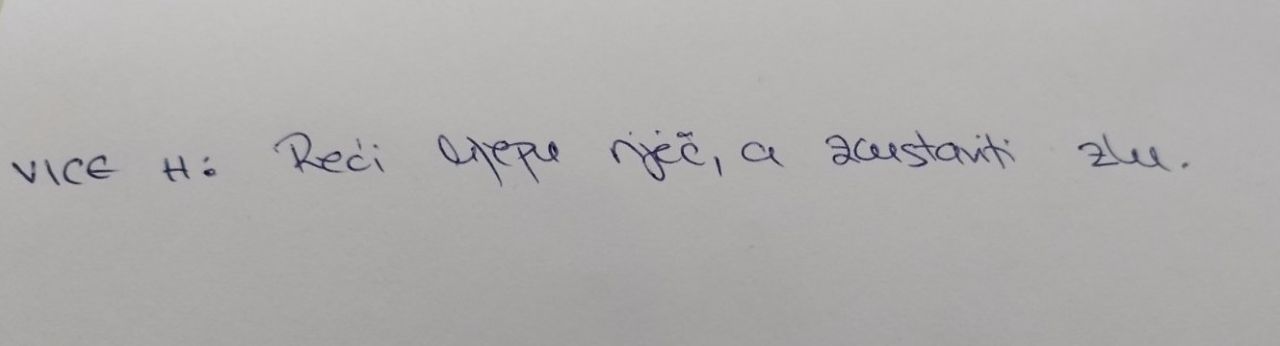 VICE H: Reći lijepu riječ, a zaustaviti zlu.